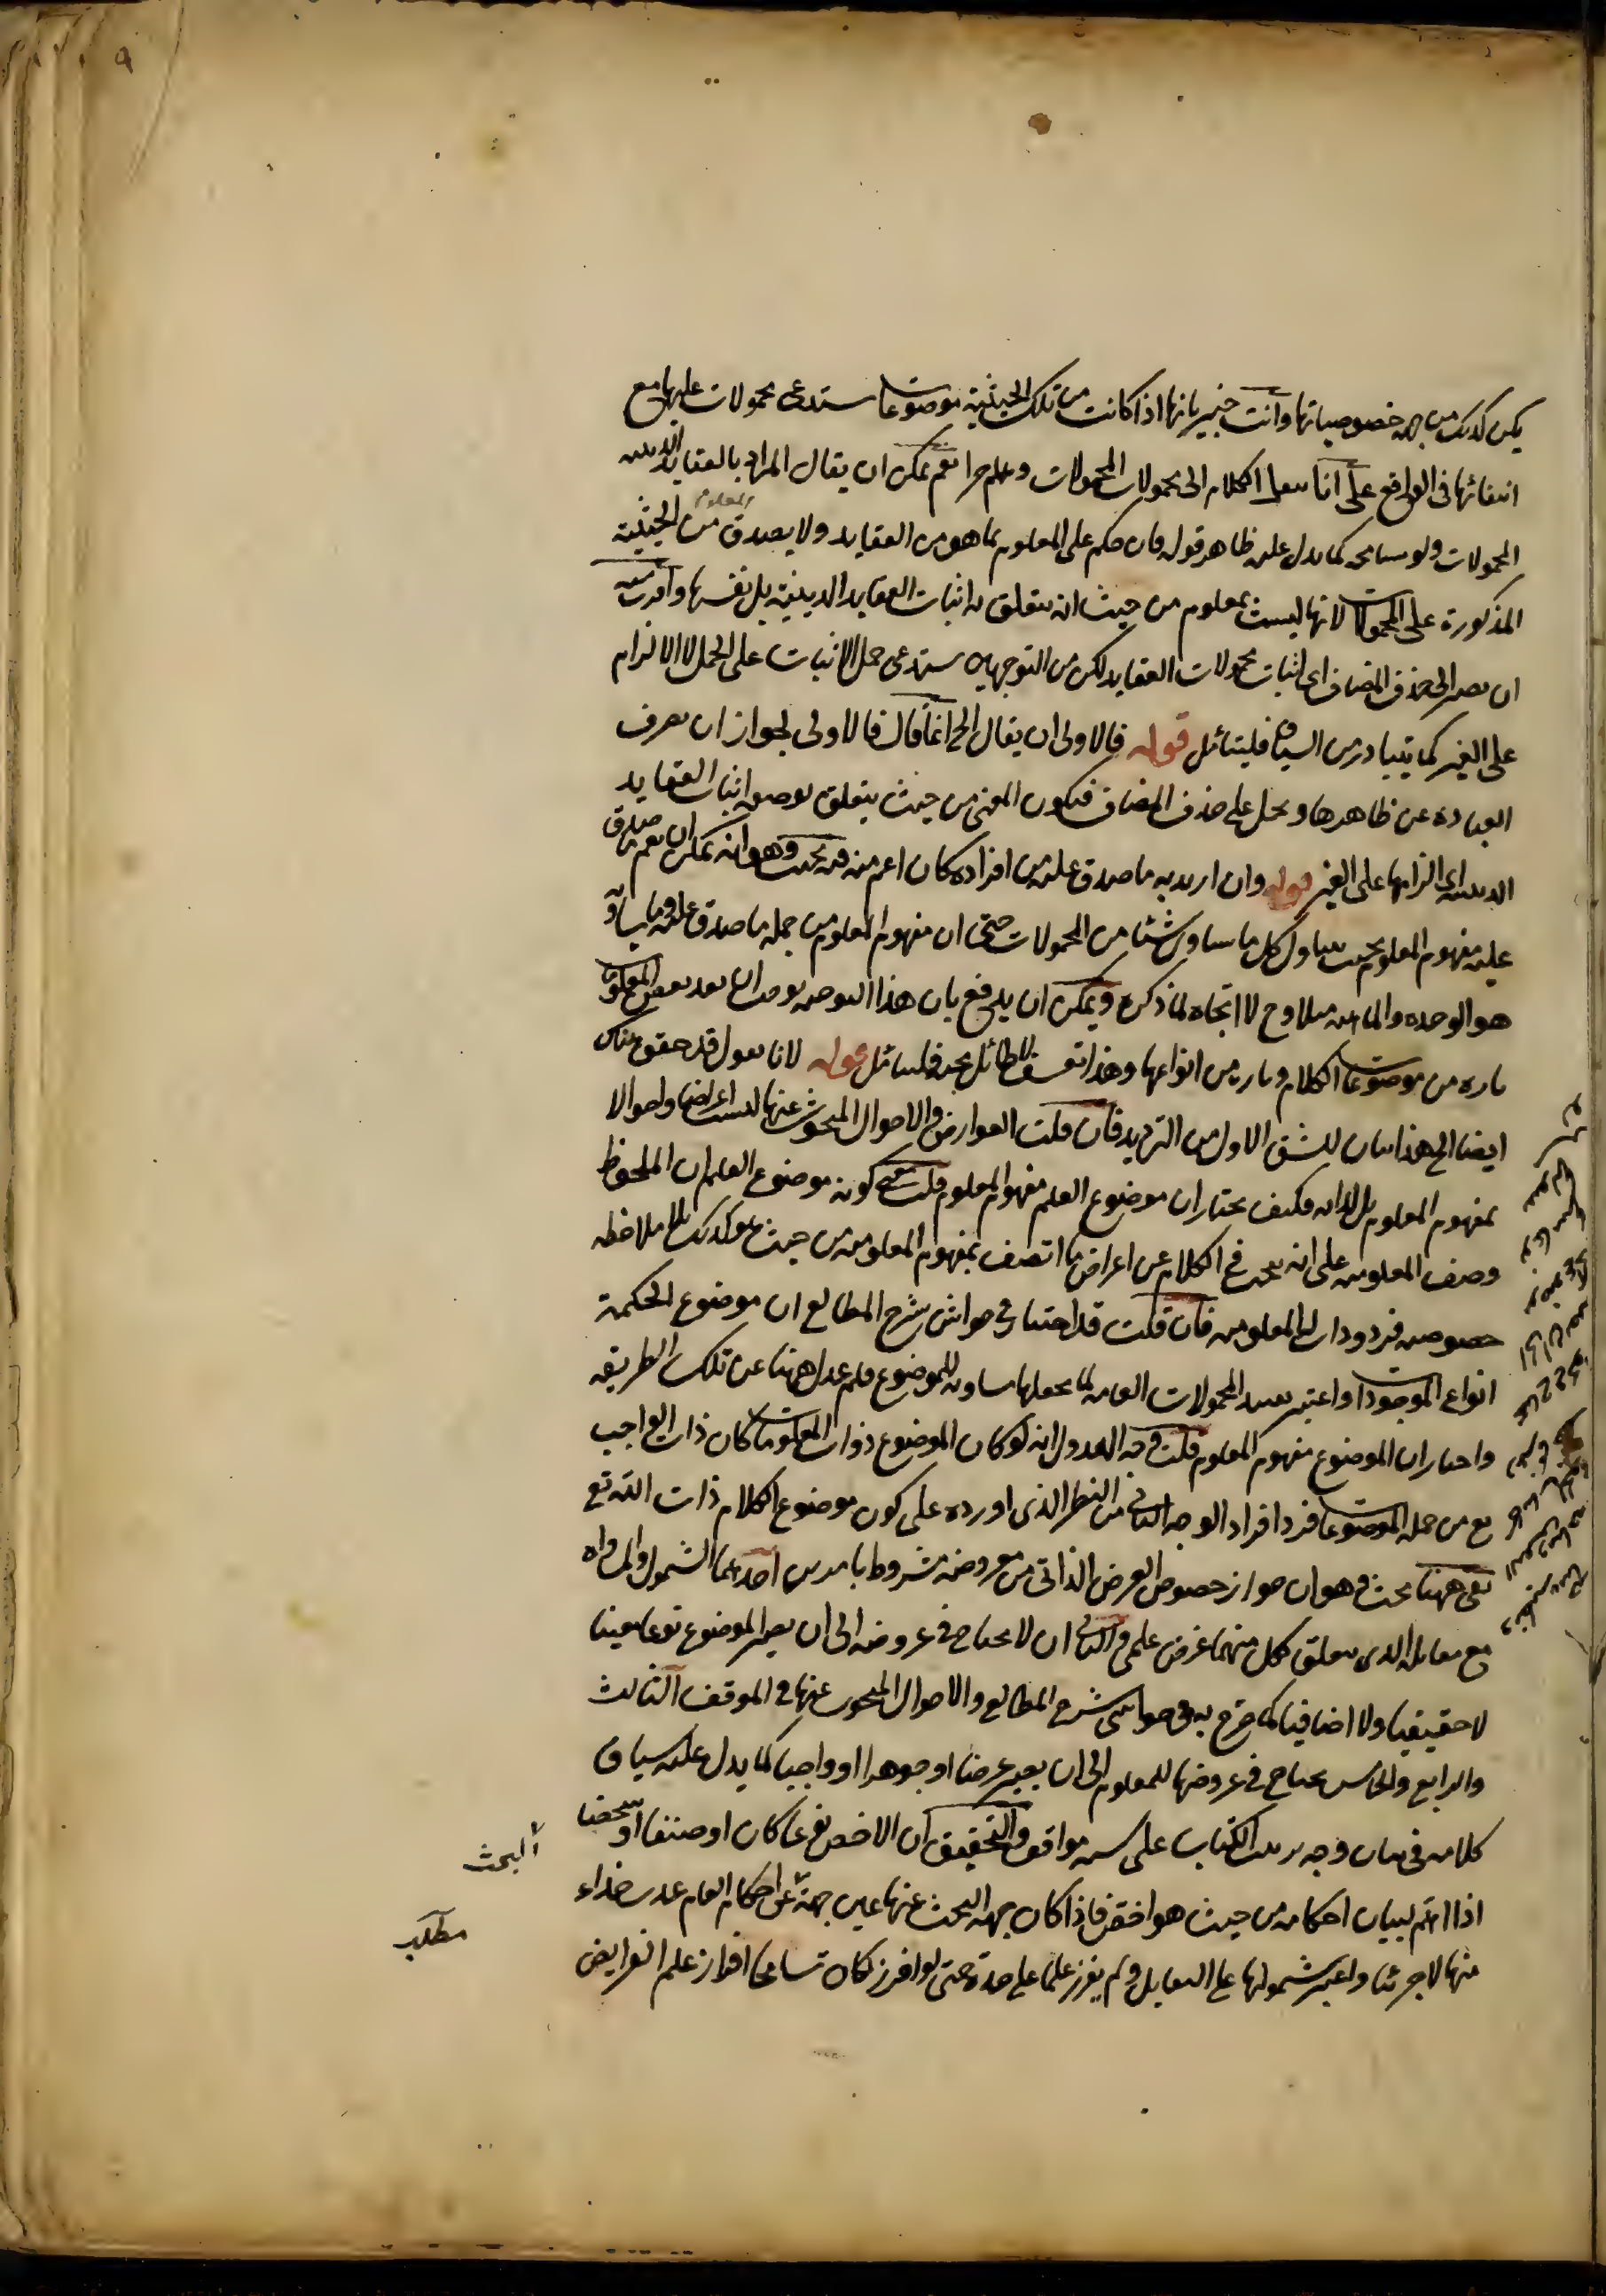 ٩
يكن كذلك من جهة خصوصياتها وانت خبير بانها اذا كانت من تلك الحيثية موضوعات ستدعى محمولات عليها مع
انتفائها فى الواقع على انا ننقل الكلام الى محمولات المحمولات وهلم جرا نعم يمكن ان يقال المراد بالعقايد الدينية
المحمولات ولو مسامحة كما يدل عليه ظاهر قوله فان حكم على المعلوم بما هو من العقايد ولا يصدق المعلوم من الحيثية
المذكورة على المحمولات لانها ليست بمعلوم من حيث انه يتعلق به اثبات العقايد الدينية بل نفسها واقرب منه
ان يصير الى حذف المضاف اى اثبات محمولات العقايد لكن من التوجيهين ستدعى حمل الاثبات على الحمل لا الالزام
على الغير كما يتبادر من السياق فليتأمل قوله فالاولى ان يقال الخ انما قال فالاولى لجواز ان يصرف
العبارة عن ظاهرها ويحمل على حذف المضاف فيكون المعنى من حيث يتعلق بوصفه اثبات العقايد
الدينية اى الزامها على الغير قوله وان اريد به ما صدق عليه من افراده كان اعم منه فيه بحث وهو انه يمكن ان يعم ما صدق
عليه مفهوم المعلوم بحيث يتناول كل ما يساوى شيئا من المحمولات حتى ان مفهوم المعلوم من جملة ما صدق عليه وما يساوق
هو الوحدة والماهية مثلا وح لا اتجاه لما ذكره ويمكن ان يدفع بان هذا التوجيه يوجب ان يعد بعض المعلومات
تارة من موضوعات الكلام وتارة من انواعها وهذا تعسف لا طائل تحته فليتأمل قوله لانا نقول قد حقق هناك
ايضا الخ هذا بيان للشق الاول من الترديد فان قلت العوارض والاحوال المبحوث عنها ليست اعراضا واحوالا
لمفهوم المعلوم بل لذاته فكيف يختار ان موضوع العلم مفهوم المعلوم قلت معنى كونه موضوع العلم ان الملحوظ
وصف المعلومية على انه يبحث فى الكلام عن اعراض ما اتصف بمفهوم المعلوم من حيث هو كذلك بلا ملاحظة
خصوصية فرد ودات له المعلومية فان قلت قد اختار فى حواشى شرح المطالع ان موضوع الحكمة
انواع الموجودات واعتبر تقييد المحمولات العامة بما يجعلها مساوية للموضوع فلم عدل ههنا عن تلك الطريقة
واختار ان الموضوع مفهوم المعلوم قلت وجه العدول انه لو كان الموضوع ذوات المعلومات لكان ذات الواجب
تع من جملة الموضوعات فرد افراد الوجه الثانى من النظر الذى اورده على كون موضوع الكلام ذات الله تع
بقى ههنا بحث وهو ان جواز خصوص العرض الذاتى من معروضه مشروط بامرين احدهما الشمول والمساواة
مع مقابله الذى يتعلق بكل منهما غرض علمى والثانى ان لا يحتاج فى عروضه الى ان يصير الموضوع نوعا معينا
لا حقيقيا ولا اضافيا كما صرح به فى حواشى شرح المطالع والاحوال المبحوث عنها فى الموقف الثالث
والرابع والخامس يحتاج فى عروضها للمعلوم الى ان يصير عرضا او جوهرا او واجبا كما يدل عليه سياق
كلامه فى بيان وجه ترتيب الكتاب على ستة مواقف والتحقيق ان الاخص نوعا كان او صنفا او شخصا
اذا اهتم لبيان احكامه من حيث هو اخص فاذا كان جهة البحث عنها عين جهة البحث عن احكام العام عد
منها لا جزئيا واعتبر شمولها على التقابل ولم يفرز علما على حدة حتى لو افرز لكان تسامحا افراز علم الفرايض
البحث
مطلب